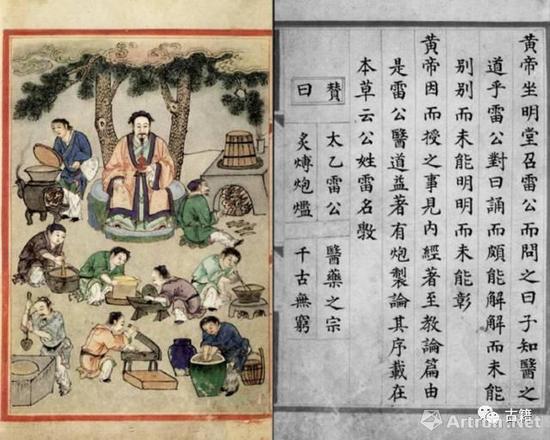 黄帝坐明堂召雷公而問之曰子知醫之
道乎雷公對曰誦而頗能解解而未能
別別而未能明明而未能彰
黄帝因而授之事見内經著至教論篇由
是雷公醫道益著有炮製論其序載在
本草云公姓雷名
贊曰
太乙雷公 醫藥之宗
炙煿炮爁 千古無窮
古籍
Artron.Net